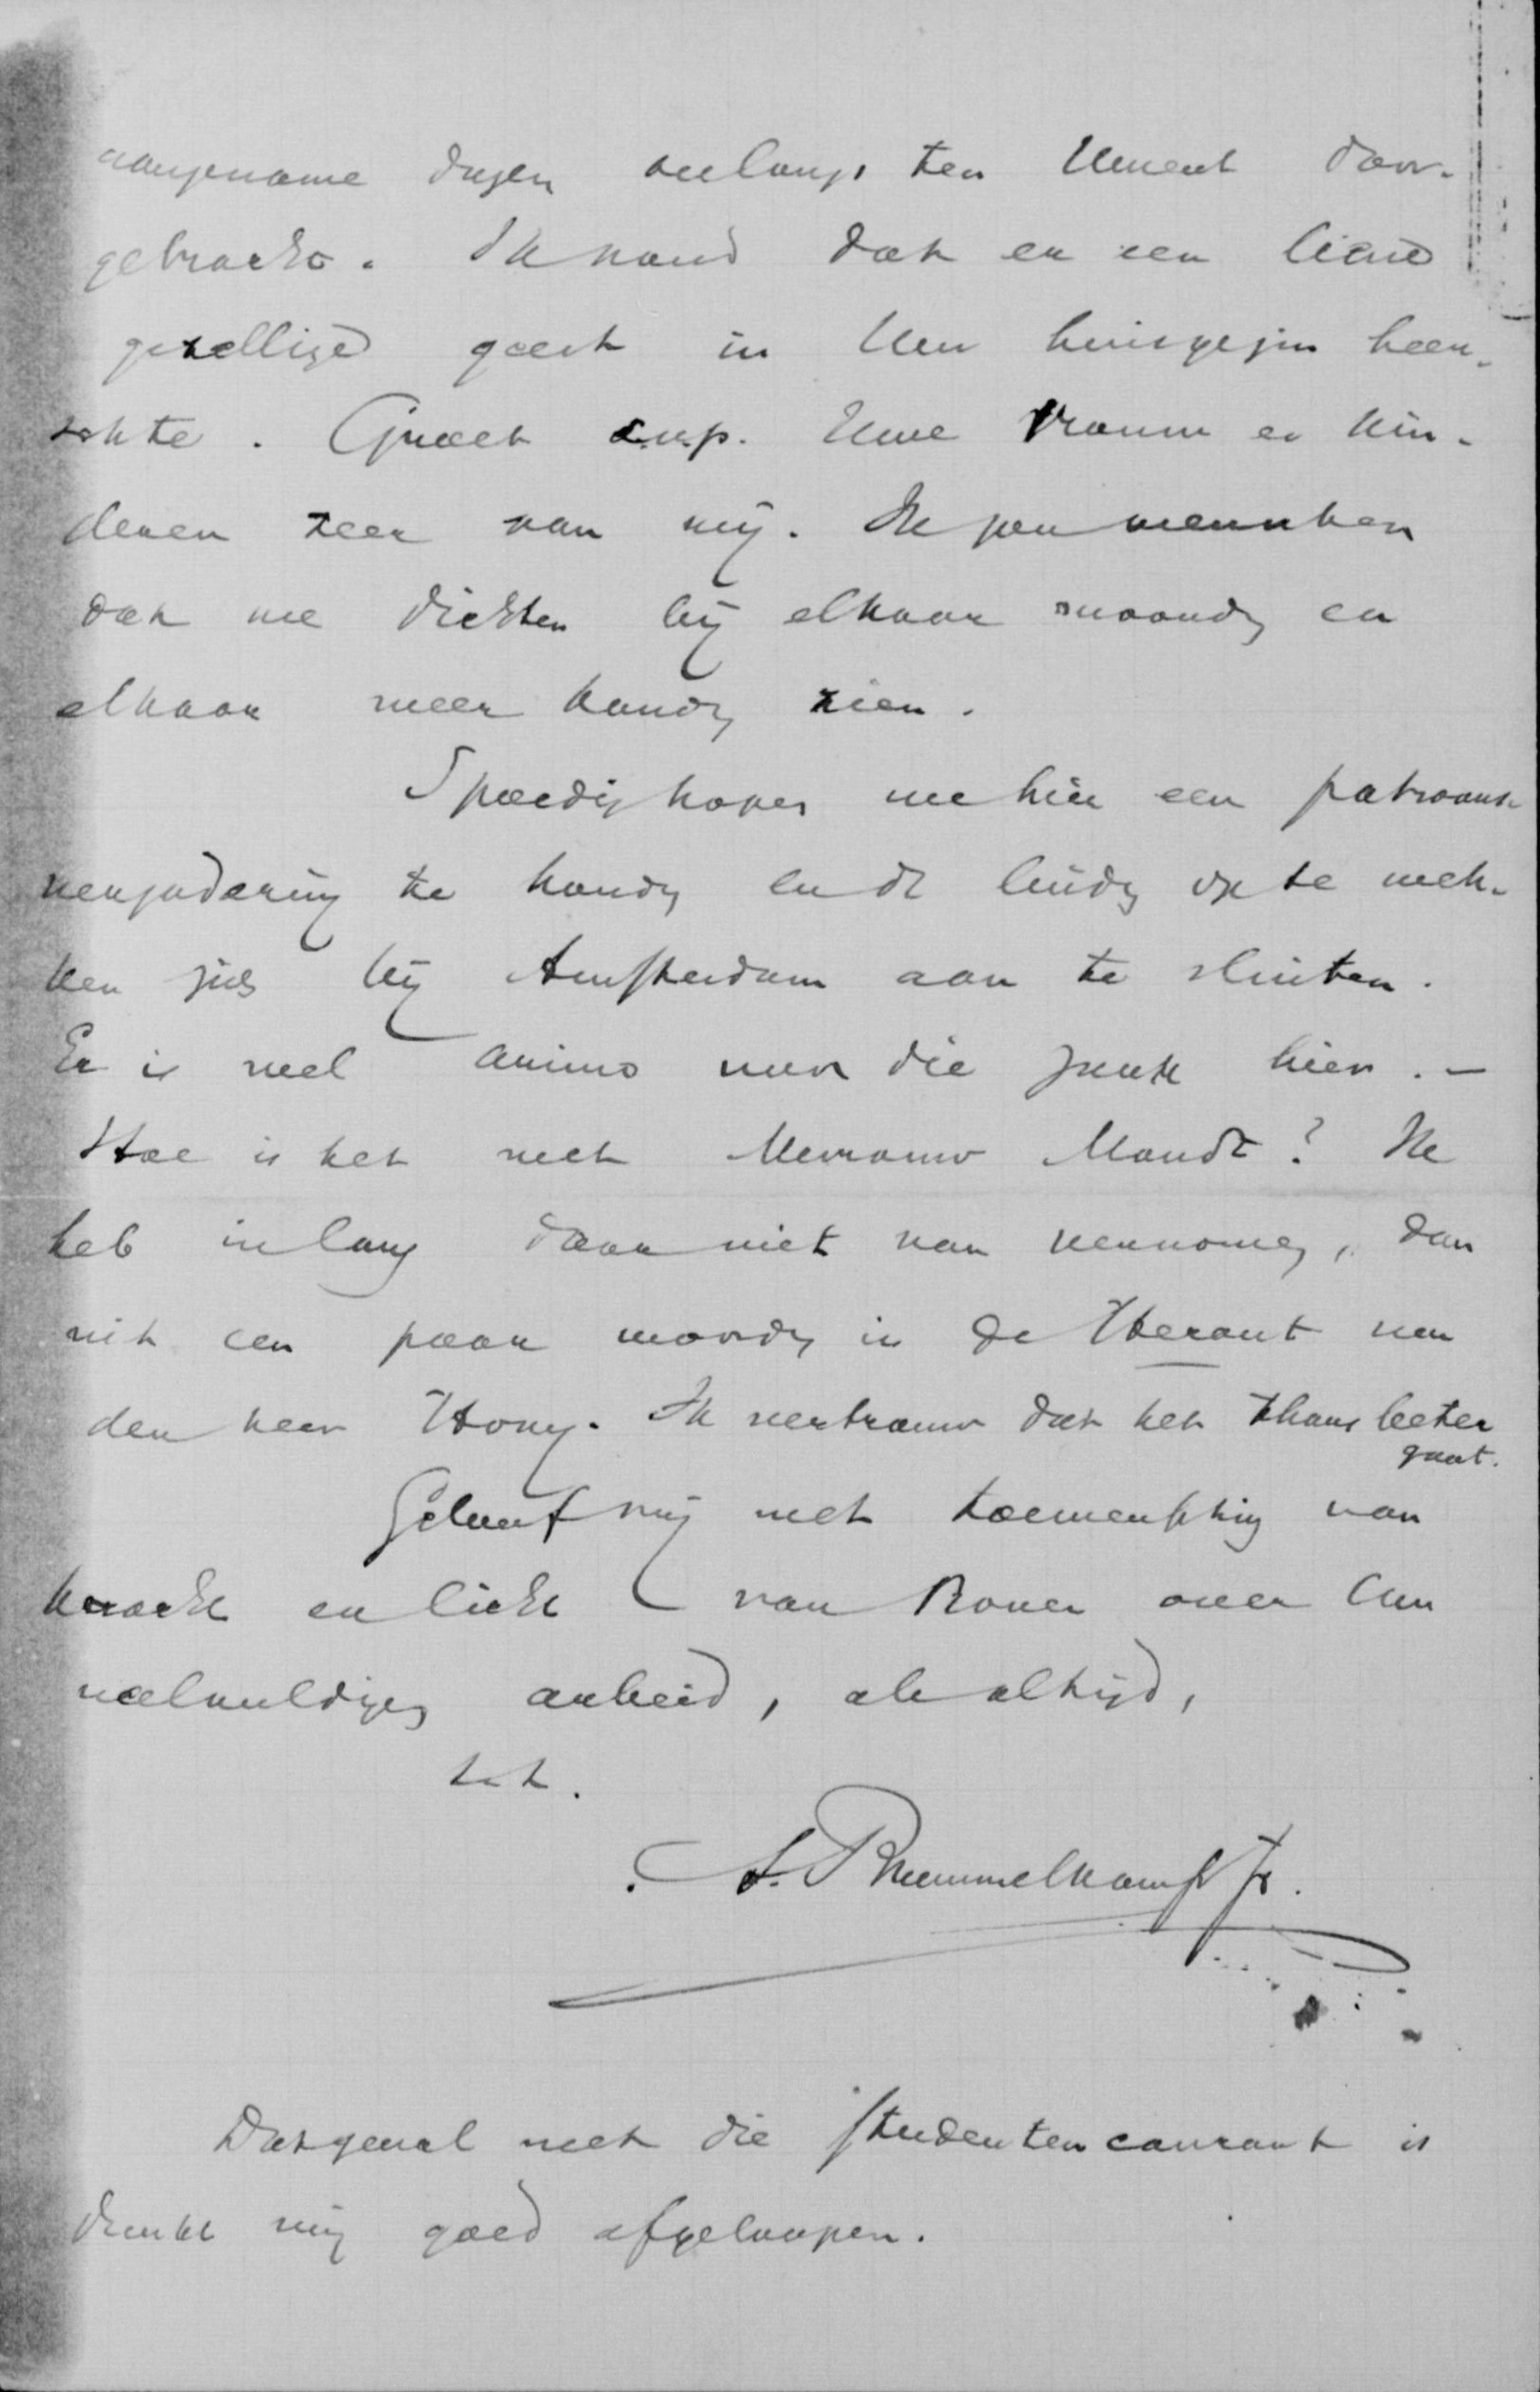 aangename dagen onlangs ten Uwent door-
gebracht. Ik vond dat er een lieve
gezellige geest in Uw huisgezin heer-
schte. Groet s.v.p. Uwe Vrouw en kin-
deren zeer van mij. Ik zou wenschen
dat we dichter bij elkaar woonden en
elkaar meer konden zien.
Spoedig hopen we hier een patroons-
vergadering te houden en de lieden op te wek-
ken zich bij Amsterdam aan te sluiten.
Er is wel animo voor die zaak hier. -
Hoe is het met Mevrouw Mondt? Ik
heb in lang daar niet van vernomen, dan
uit een paar woorden in de Heraut van
den heer Hovy. Ik vertrouw dat het thans beter
gaat.
Geloof mij met toewensching van
kracht en licht van Boven over Uw
veelvuldigen arbeid, als altijd,
t.t.
A. Brummelkamp Jr.
Dat geval met die studentencourant is
dunkt mij goed afgeloopen.